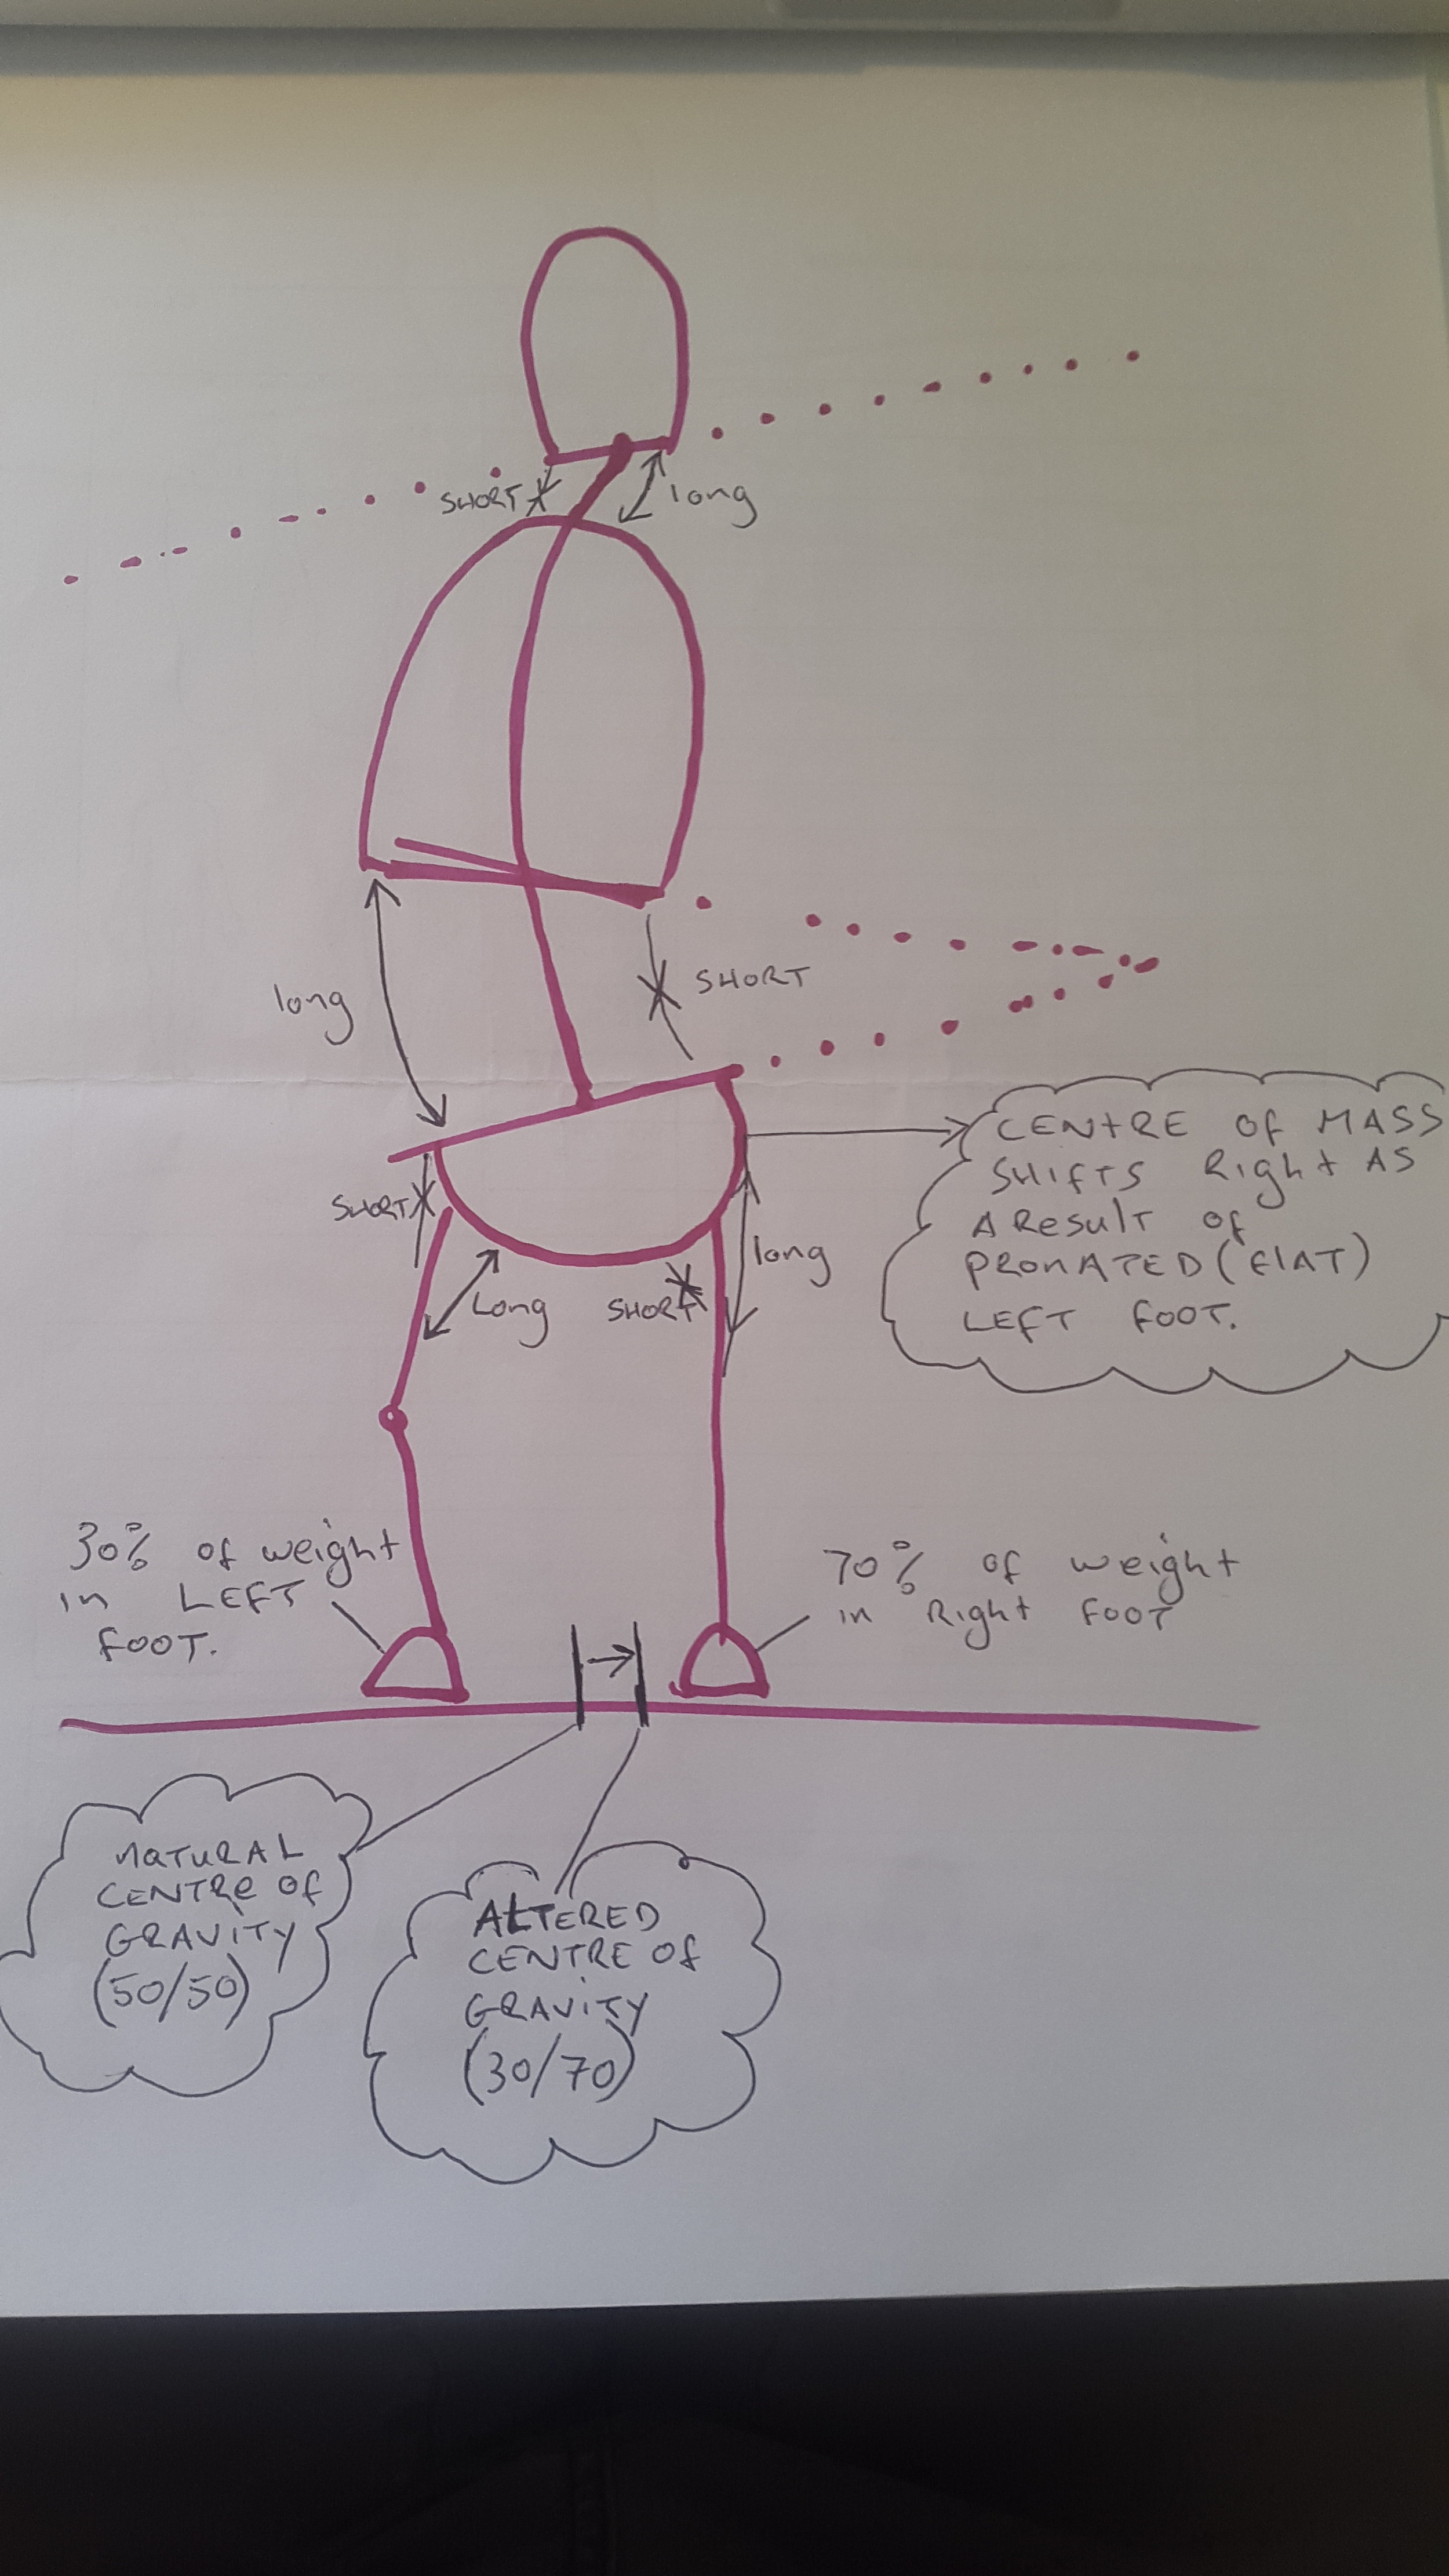 SHORT
long
long
SHORT
CENTRE OF MASS
SHIFTS Right AS
A Result OF
PRONATED (FlAT)
LEFT FOOT.
SHORT
long
Long
SHORT
30% of weight
in LEFT
FOOT.
70% of weight
in Right FOOT
NATURAL
CENTRE OF
GRAVITY
(50/50)
ALTERED
CENTRE OF
GRAVITY
(30/70)